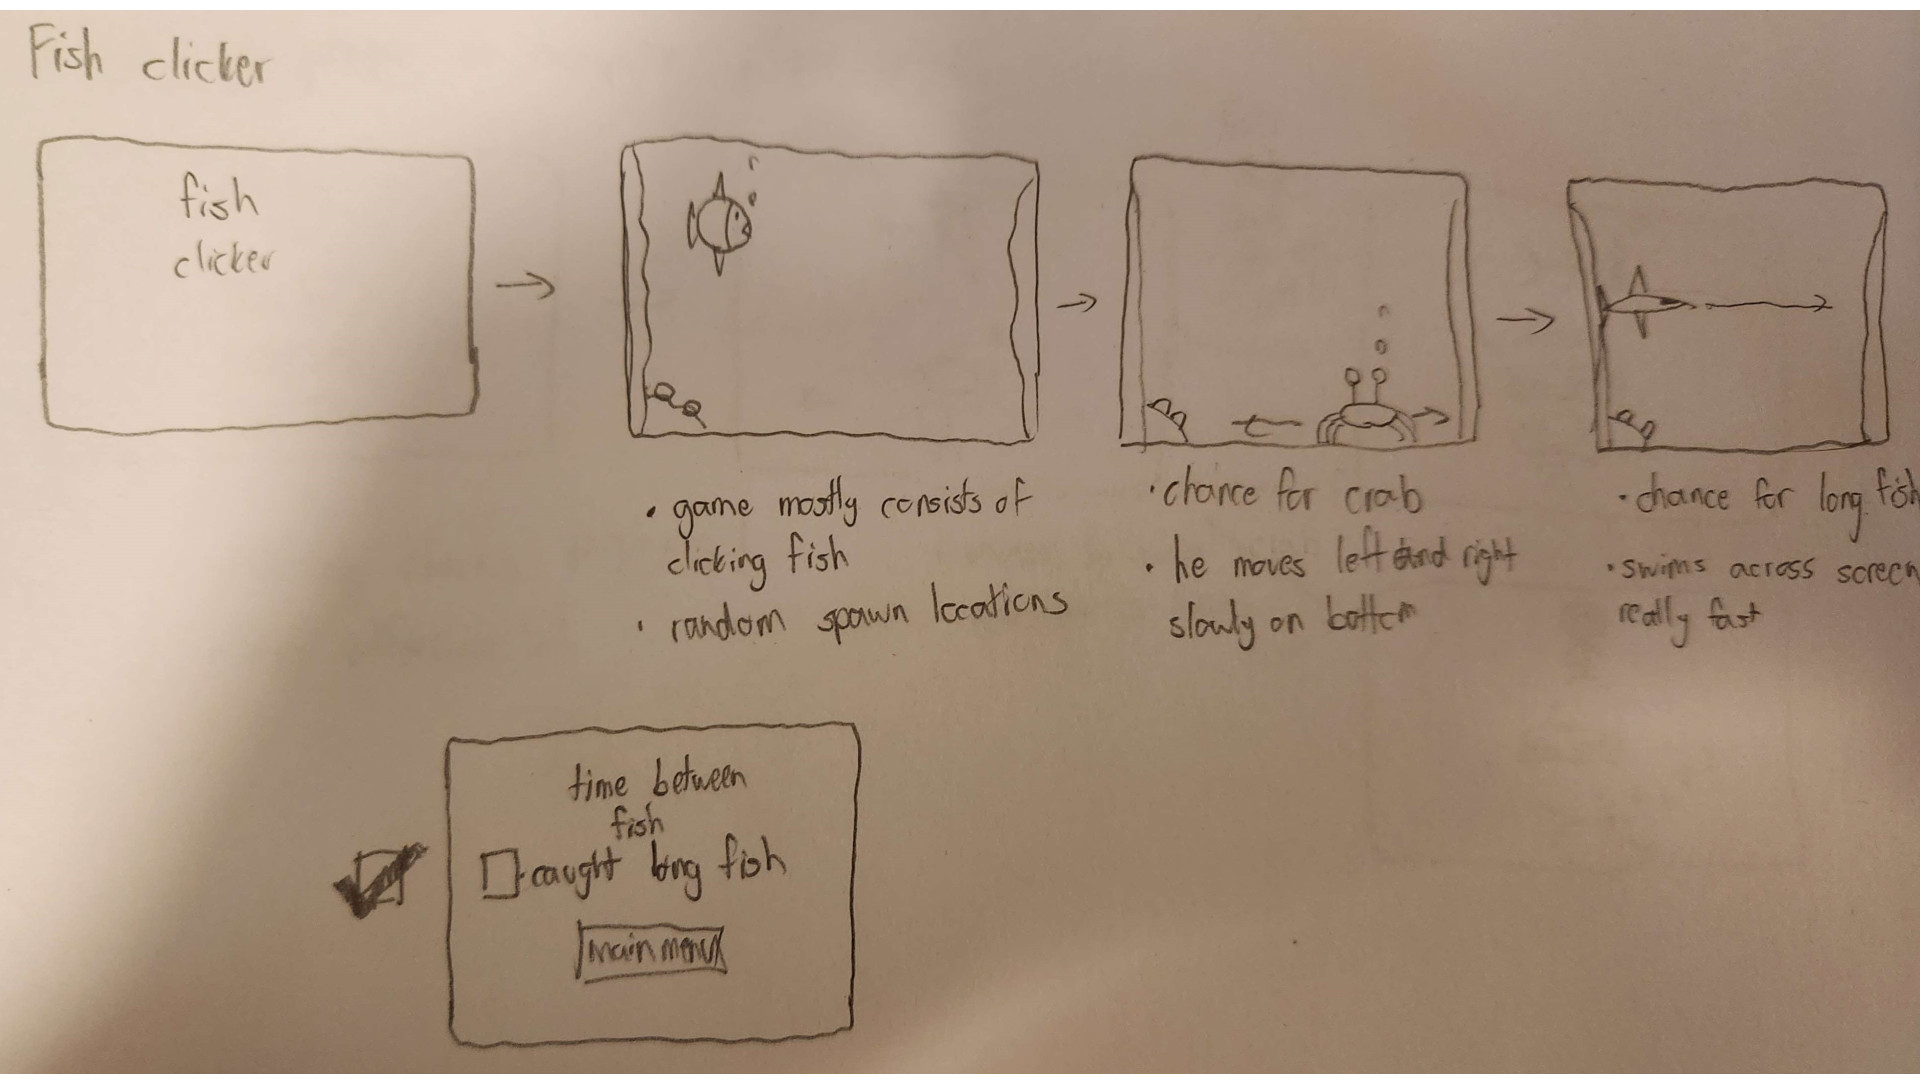 Fish clicker
fish
clicker
• game mostly consists of
clicking fish
• random spawn locations
• chance for crab
• he moves left and right
slowly on bottom
• chance for long fish
• swims across screen
really fast
time between
fish
caught long fish
main menu